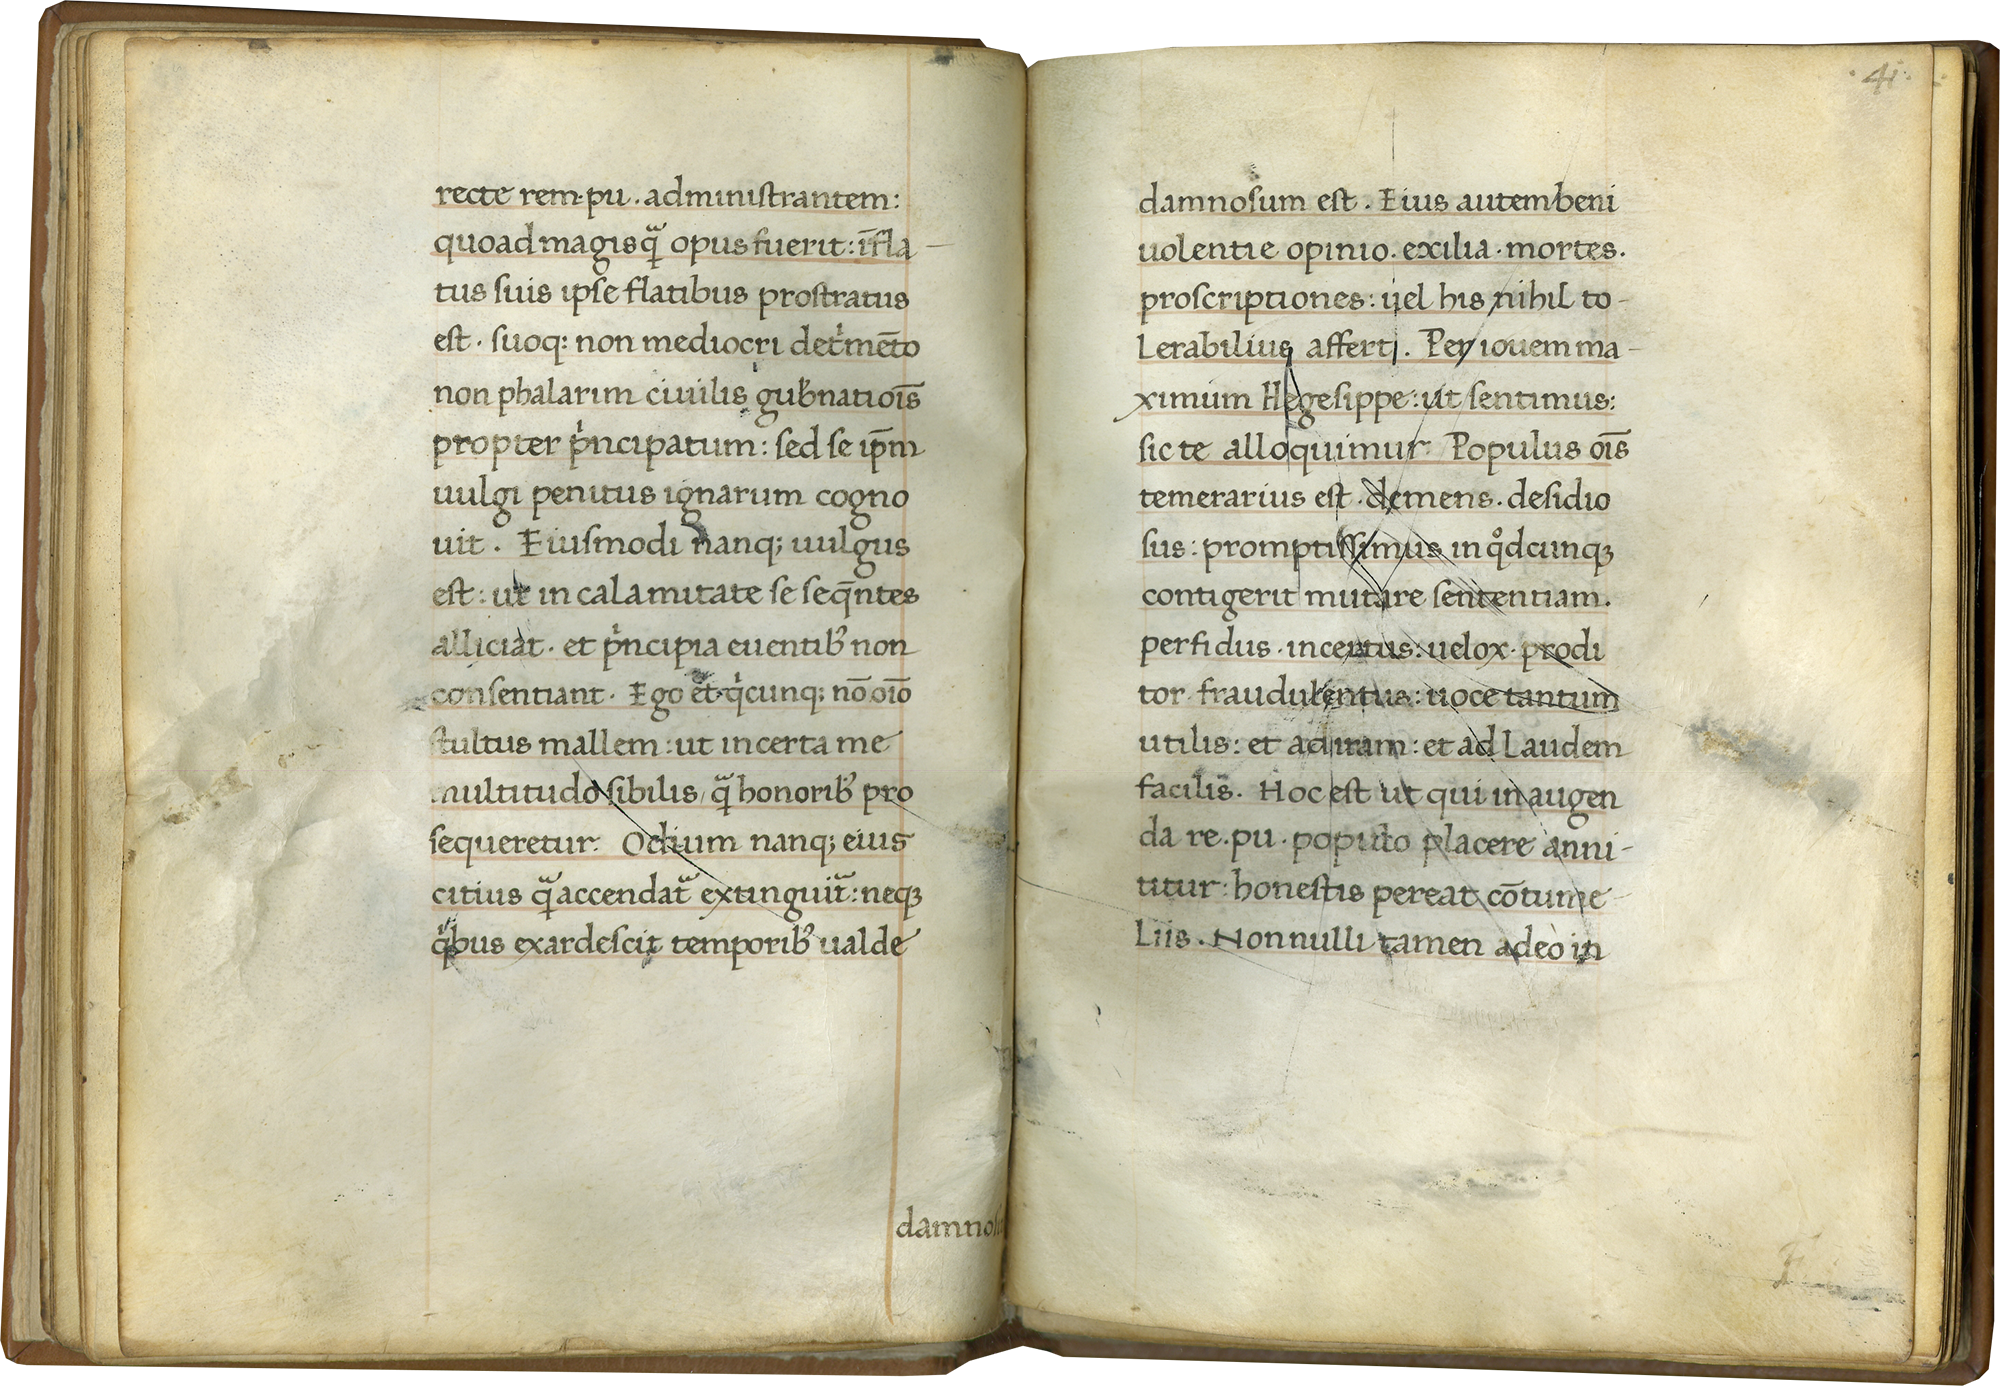 recte rem·pu. administrantem:
quoad magisq̃ opus fuerit: ĩfla-
tus suis ipse flatibus prostratus
est. suoq: non mediocri det̍mẽto
non phalarim ciuilis gub̍natiõis
propter p̍ncipatum: sed se ip̃m
uulgi penitus ignarum cogno
uit. Eiusmodi nanq; uulgus
est: ut in calamitate se seq̃ntes
alliciat. et p̍ncipia euentib᾿ non
consentiant. Ego et q̍cunq; nõ oĩo
stultus mallem: ut incerta me
multitudo sibilis, q̃ honorib᾿ pro
sequeretur. Odium nanq; eius
citius q̃ accendat̃ extinguit̃: neqꝫ
q̍bus exardescit temporib᾿ ualde
damnosu
41
damnosum est. Eius autem beni
uolentie opinio. exilia. mortes.
proscriptiones: uel his nihil to-
lerabilius affert. Per iouem ma-
ximum Hegesippe: ut sentimus:
sic te alloquimur. Populus oĩs
temerarius est. demens. desidio
sus: promptissimus in qͦdcunqꝫ
contigerit mutare sententiam.
perfidus. incertus: uelox. prodi
tor. fraudulentus: uoce tantum
utilis: et ad iram: et ad laudem
facilis. Hoc est ut qui in augen
da re.pu. populo placere anni-
titur: honestis pereat cõtume-
liis. Nonnulli tamen adeo in